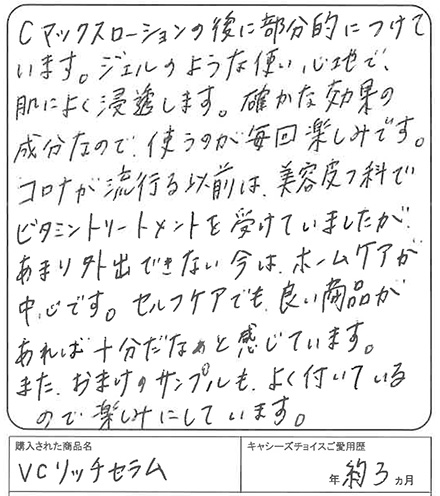 Cマックスローションの後に部分的につけて
います。ジェルのような使い心地で、
肌によく浸透します。確かな効果の
成分なので、使うのが毎回楽しみです。
コロナが流行る以前は、美容皮フ科で
ビタミントリートメントを受けていましたが、
あまり外出できない今は、ホームケアが
中心です。セルフケアでも、良い商品が
あれば十分だなぁと感じています。
また、おまけのサンプルも、よく付いている
ので楽しみにしています。
購入された商品名
VCリッチセラム
キャシーズチョイスご愛用歴
年 約3 カ月